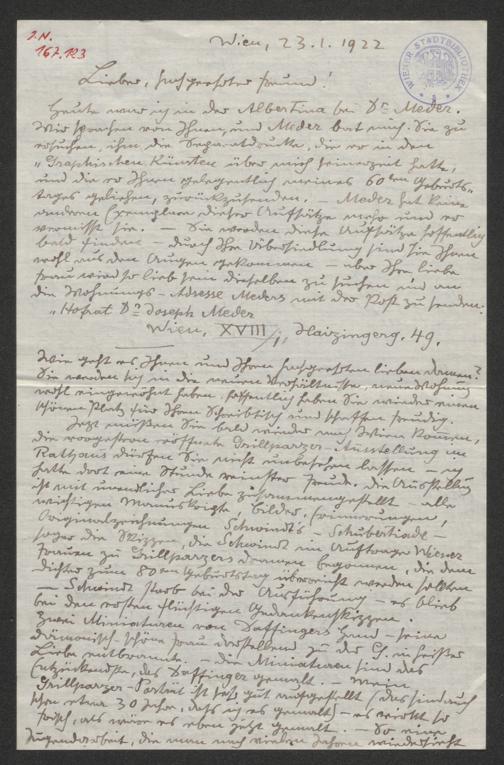 I.N.
167.123
WIENER STADTBIBLIOTHEK
Wien, 23.1.1922
Lieber, hochgeehrter Freund!
Heute war ich in der Albertina bei Dr. Meder.
Wir sprachen von Ihnen, und Meder bat mich, Sie zu
ersuchen, ihm die Separatdrucke, die er in den
"Graphischen Künsten über mich seinerzeit hatte,
und die er Ihnen gelegentlich meines 60ten Geburts-
tages geliehen, zurückzusenden. – Meder hat keine
anderen Exemplare dieser Aufsätze mehr und er
vermisst sie. – Sie werden diese Aufsätze hoffentlich
bald finden – durch Ihre Übersiedlung sind sie Ihnen
wohl aus den Augen gekommen – aber Ihre liebe
Frau wird so lieb sein dieselben zu suchen und an
die Wohnungs-Adresse Meders mit der Post zu senden.
"Hofrat Dr. Joseph Meder
Wien, XVIII/1, Haizingerg. 49.
Wie geht es Ihnen und Ihren hochgeehrten lieben Damen?
Sie werden sich in die neuen Verhältnisse, neue Wohnung
wohl eingewöhnt haben, hoffentlich haben Sie wieder einen
schönen Platz für Ihren Schreibtisch und schaffen freudig.
Jetzt müßen Sie bald wieder nach Wien kommen,
die vorgestern eröffnete Grillparzer-Ausstellung im
Rathaus dürfen Sie nicht unbesehen lassen – ich
hatte dort eine Stunde reinster Freude. Die Ausstellung
ist mit unendlicher Liebe zusammengestellt – alle
wichtigen Manuskripte, Bilder, Erinnerungen,
Originalzeichnungen Schwindt's – Schubertiade –
sogar die Skizzen, die Schwindt im Auftrage Wiener
Frauen zu Grillparzers Dramen begonnen, die dem
Dichter zum 80ten Geburtstag überreicht werden sollten
– Schwindt starb bei der Ausführung – es blieb
bei den ersten flüchtigen Gedankenskizzen.
Zwei Miniaturen von Daffingers Hand – seine
dämonisch schöne Frau darstellend zu der G. in heißer
Liebe entbrannte. – Die Miniaturen sind das
Entzückendste, das Daffinger gemalt. – Mein
Grillparzer-Porträt ist sehr gut aufgestellt (das sind auch
schon etwa 30 Jahre, dass ich es gemalt) – es wirkt so
frisch, als wäre es eben jetzt gemalt. – So eine
Jugendarbeit, die man nach vielen Jahren wiedersieht